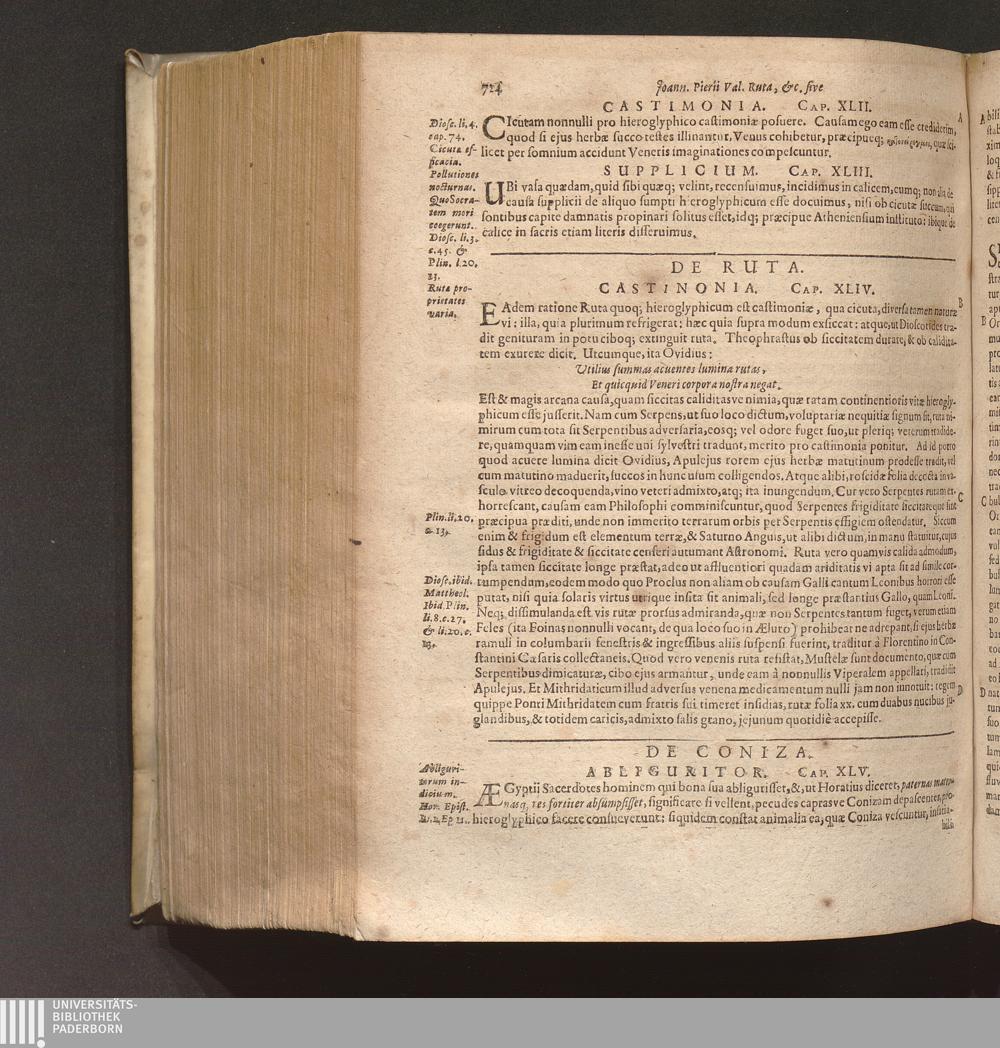 724 Joann. Pierii Val. Ruta, &c. sive
CASTIMONIA. CAP. XLII.
CIcutam nonnulli pro hieroglyphico castimoniæ posuere. Causam ego eam esse crediderim, A
quod si ejus herbæ succo testes illinantur, Venus cohibetur, præcipueq;
licet per somnium accidunt Veneris imaginationes compescuntur.
Diosc. li. 4.
cap. 74.
Cicutæ ef-
ficacia.
Pollutiones
nocturnas.
SUPPLICIUM. CAP. XLIII.
UBi vasa quædam, quid sibi quæq; velint, recensuimus, incidimus in calicem, eumq; non alia de
causa supplicii de aliquo sumpti hieroglyphicum esse docuimus, nisi ob cicutæ succum, qui
sontibus capite damnatis propinari solitus esset, idq; præcipue Atheniensium instituto: ibique de
calice in sacris etiam literis disseruimus.
Quo Socra-
tem mori
coegerunt.
Diosc. li. 3.
c. 45. &
Plin. l. 20.
13.
Ruta pro-
prietates
varia.
DE RUTA.
CASTINONIA. CAP. XLIV.
EAdem ratione Ruta quoq; hieroglyphicum est castimoniæ, qua cicuta, diversa tamen naturæ B
vi: illa, quia plurimum refrigerat: hæc quia supra modum exsiccat: atque, ut Dioscorides tra-
dit genituram in potu ciboq; extinguit ruta. Theophrastus ob siccitatem durare, & ob calidita-
tem exurere dicit. Utcumque, ita Ovidius:
Utilius summas acuentes lumina rutas,
Et quicquid Veneri corpora nostra negat.
Est & magis arcana causa, quam siccitas caliditasve nimia, quæ rutam continentioris vitæ hierogly-
phicum esse jusserit. Nam cum Serpens, ut suo loco dictum, voluptariæ nequitiæ signum sit, ruta ni-
mirum cum tota sit Serpentibus adversaria, eosq; vel odore fuget suo, ut pleriq; veterum tradide-
re, quamquam vim eam inesse uni sylvestri tradunt, merito pro castimonia ponitur. Ad id porro
quod acuere lumina dicit Ovidius, Apulejus rorem ejus herbæ matutinum prodesse tradit, vel
cum matutino maduerit, succos in hunc usum colligendos. Atque alibi, roscidæ folia decocta in va-
sculo vitreo decoquenda, vino veteri admixto, atq; ita inungendum. Cur vero Serpentes rutam ex-
horrescant, causam eam Philosophi comminiscuntur, quod Serpentes frigiditate siccitateque sint C
præcipua præditi, unde non immerito terrarum orbis per Serpentis effigiem ostendatur. Siccum
enim & frigidum est elementum terræ, & Saturno Anguis, ut alibi dictum, in manu statuitur, cujus
sidus & frigiditate & siccitate censeri autumant Astronomi. Ruta vero quamvis calida admodum,
ipsa tamen siccitate longe præstat, adeo ut affluentiori quadam ariditatis vi apta sit ad simile cor-
rumpendum, eodem modo quo Proclus non aliam ob causam Galli cantum Leonibus horrori esse
putat, nisi quia solaris virtus utrique insita sit animali, sed longe præstantius Gallo, quam Leoni.
Neq; dissimulanda est vis rutæ prorsus admiranda, quæ non Serpentes tantum fuget, verum etiam
Feles (ita Foinas nonnulli vocant, de qua loco suo in Æluro) prohibeat ne adrepant, si ejus herbæ
ramuli in columbarii fenestris & ingressibus aliis suspensi fuerint, traditur à Florentino in Con-
stantini Cæsaris collectaneis. Quod vero venenis ruta resistat, Mustelæ sunt documento, quæ cum
Serpentibus dimicaturæ, cibo ejus armantur, unde eam à nonnullis Viperalem appellari, tradidit
Apulejus. Et Mithridaticum illud adversus venena medicamentum nulli jam non innotuit: regem D
quippe Ponti Mithridatem cum fratris sui timeret insidias, rutæ folia xx. cum duabus nucibus ju-
glandibus, & totidem caricis, admixto salis grano, jejunum quotidiè accepisse.
Plin. li. 20.
c. 13.
Diosc. ibid.
Mattheol.
Ibid. Plin.
li. 8. c. 27.
& li. 20. c.
13.
DE CONIZA.
ABLIGURITOR. CAP. XLV.
ÆGyptij Sacerdotes hominem qui bona sua abligurisset, &, ut Horatius diceret, paternas mater-
nasq, res fortiter absumpsisset, significare si vellent, pecudes caprasve Conizam depascentes, pro
hieroglyphico facere consueverunt: siquidem constat animalia ea, quæ Coniza vescuntur, insatia-
bili
Abliguri-
torum in-
dicium.
Hor. Epist.